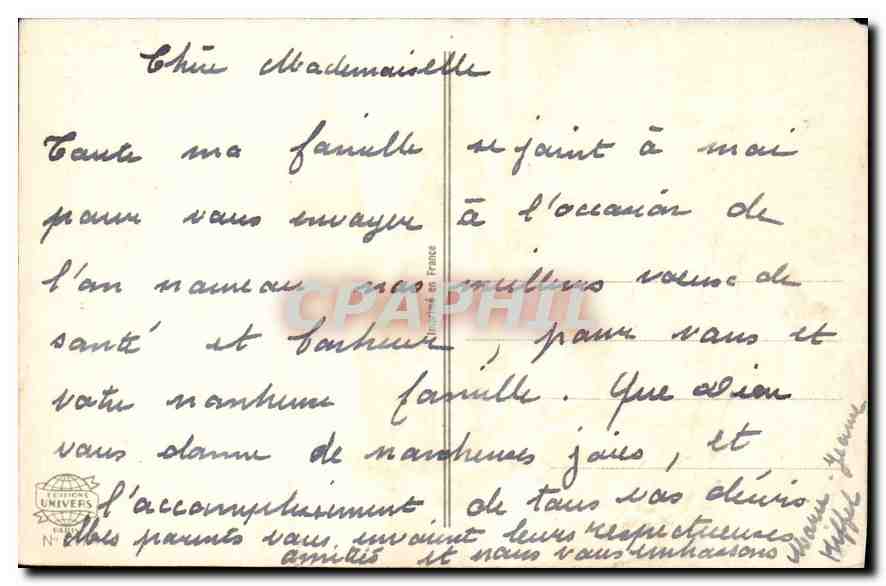 Chère Mademoiselle
Toute ma famille se joint à moi
pour vous envoyer à l'occasion de
l'an nouveau nos meilleurs voeux de
santé et bonheur, pour vous et
votre nombreuse famille. Que Dieu
vous donne de nombreuses joies, et
l'accomplissement de tous vos désirs
Mes parents vous envoient leurs respectueuses
amitiés et nous vous embrassons
Marie-Jeanne
Imprimé en France
EDITIONS
UNIVERS
PARIS
N°
CPAPHIL